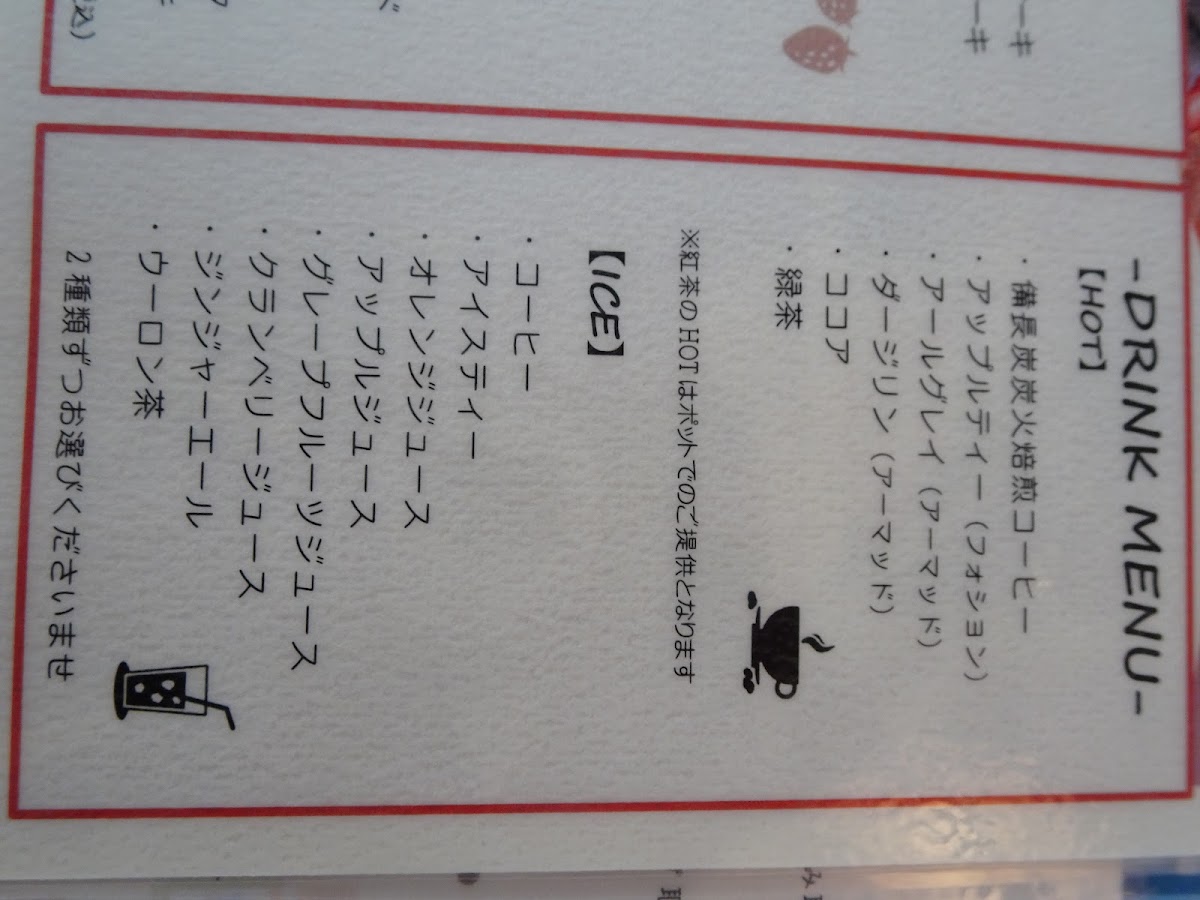 ーキ
ーキ
込)
-DRINK MENU-
【HOT】
・備長炭炭火焙煎コーヒー
・アップルティー（フォション）
・アールグレイ（アーマッド）
・ダージリン（アーマッド）
・ココア
・緑茶
※紅茶の HOT はポットでのご提供となります
【ICE】
・コーヒー
・アイスティー
・オレンジジュース
・アップルジュース
・グレープフルーツジュース
・クランベリージュース
・ジンジャーエール
・ウーロン茶
2 種類ずつお選びくださいませ